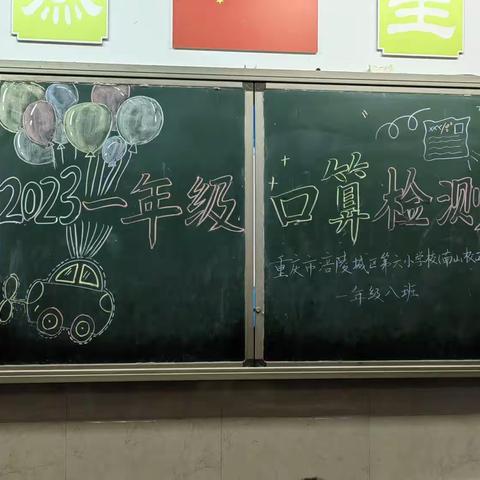 2023一年级 口算检测
重庆市涪陵城区第六小学校(南山校区
一年级八班